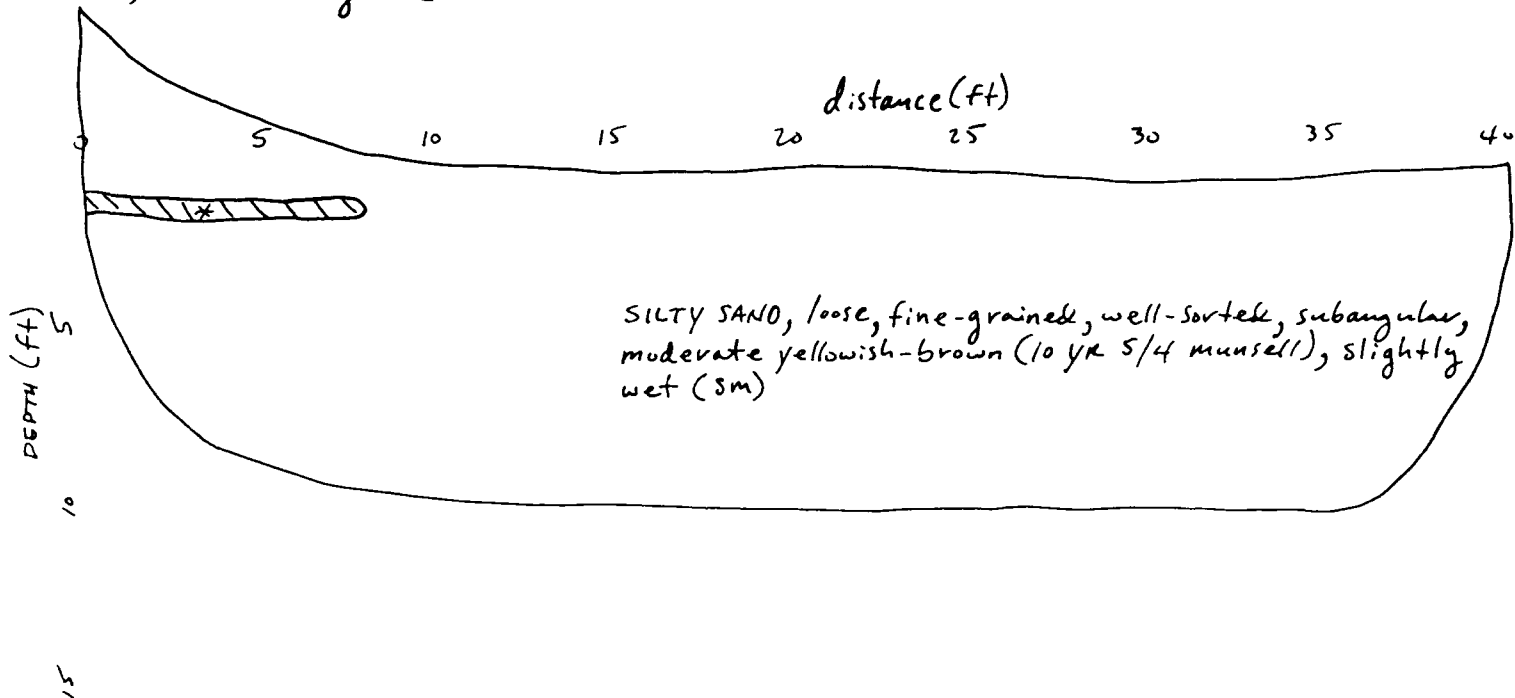 distance (ft)
0 5 10 15 20 25 30 35 40
*
DEPTH (ft)
5
10
15
SILTY SAND, loose, fine-grained, well-sorted, subangular,
moderate yellowish-brown (10 YR 5/4 munsell), slightly
wet (SM)